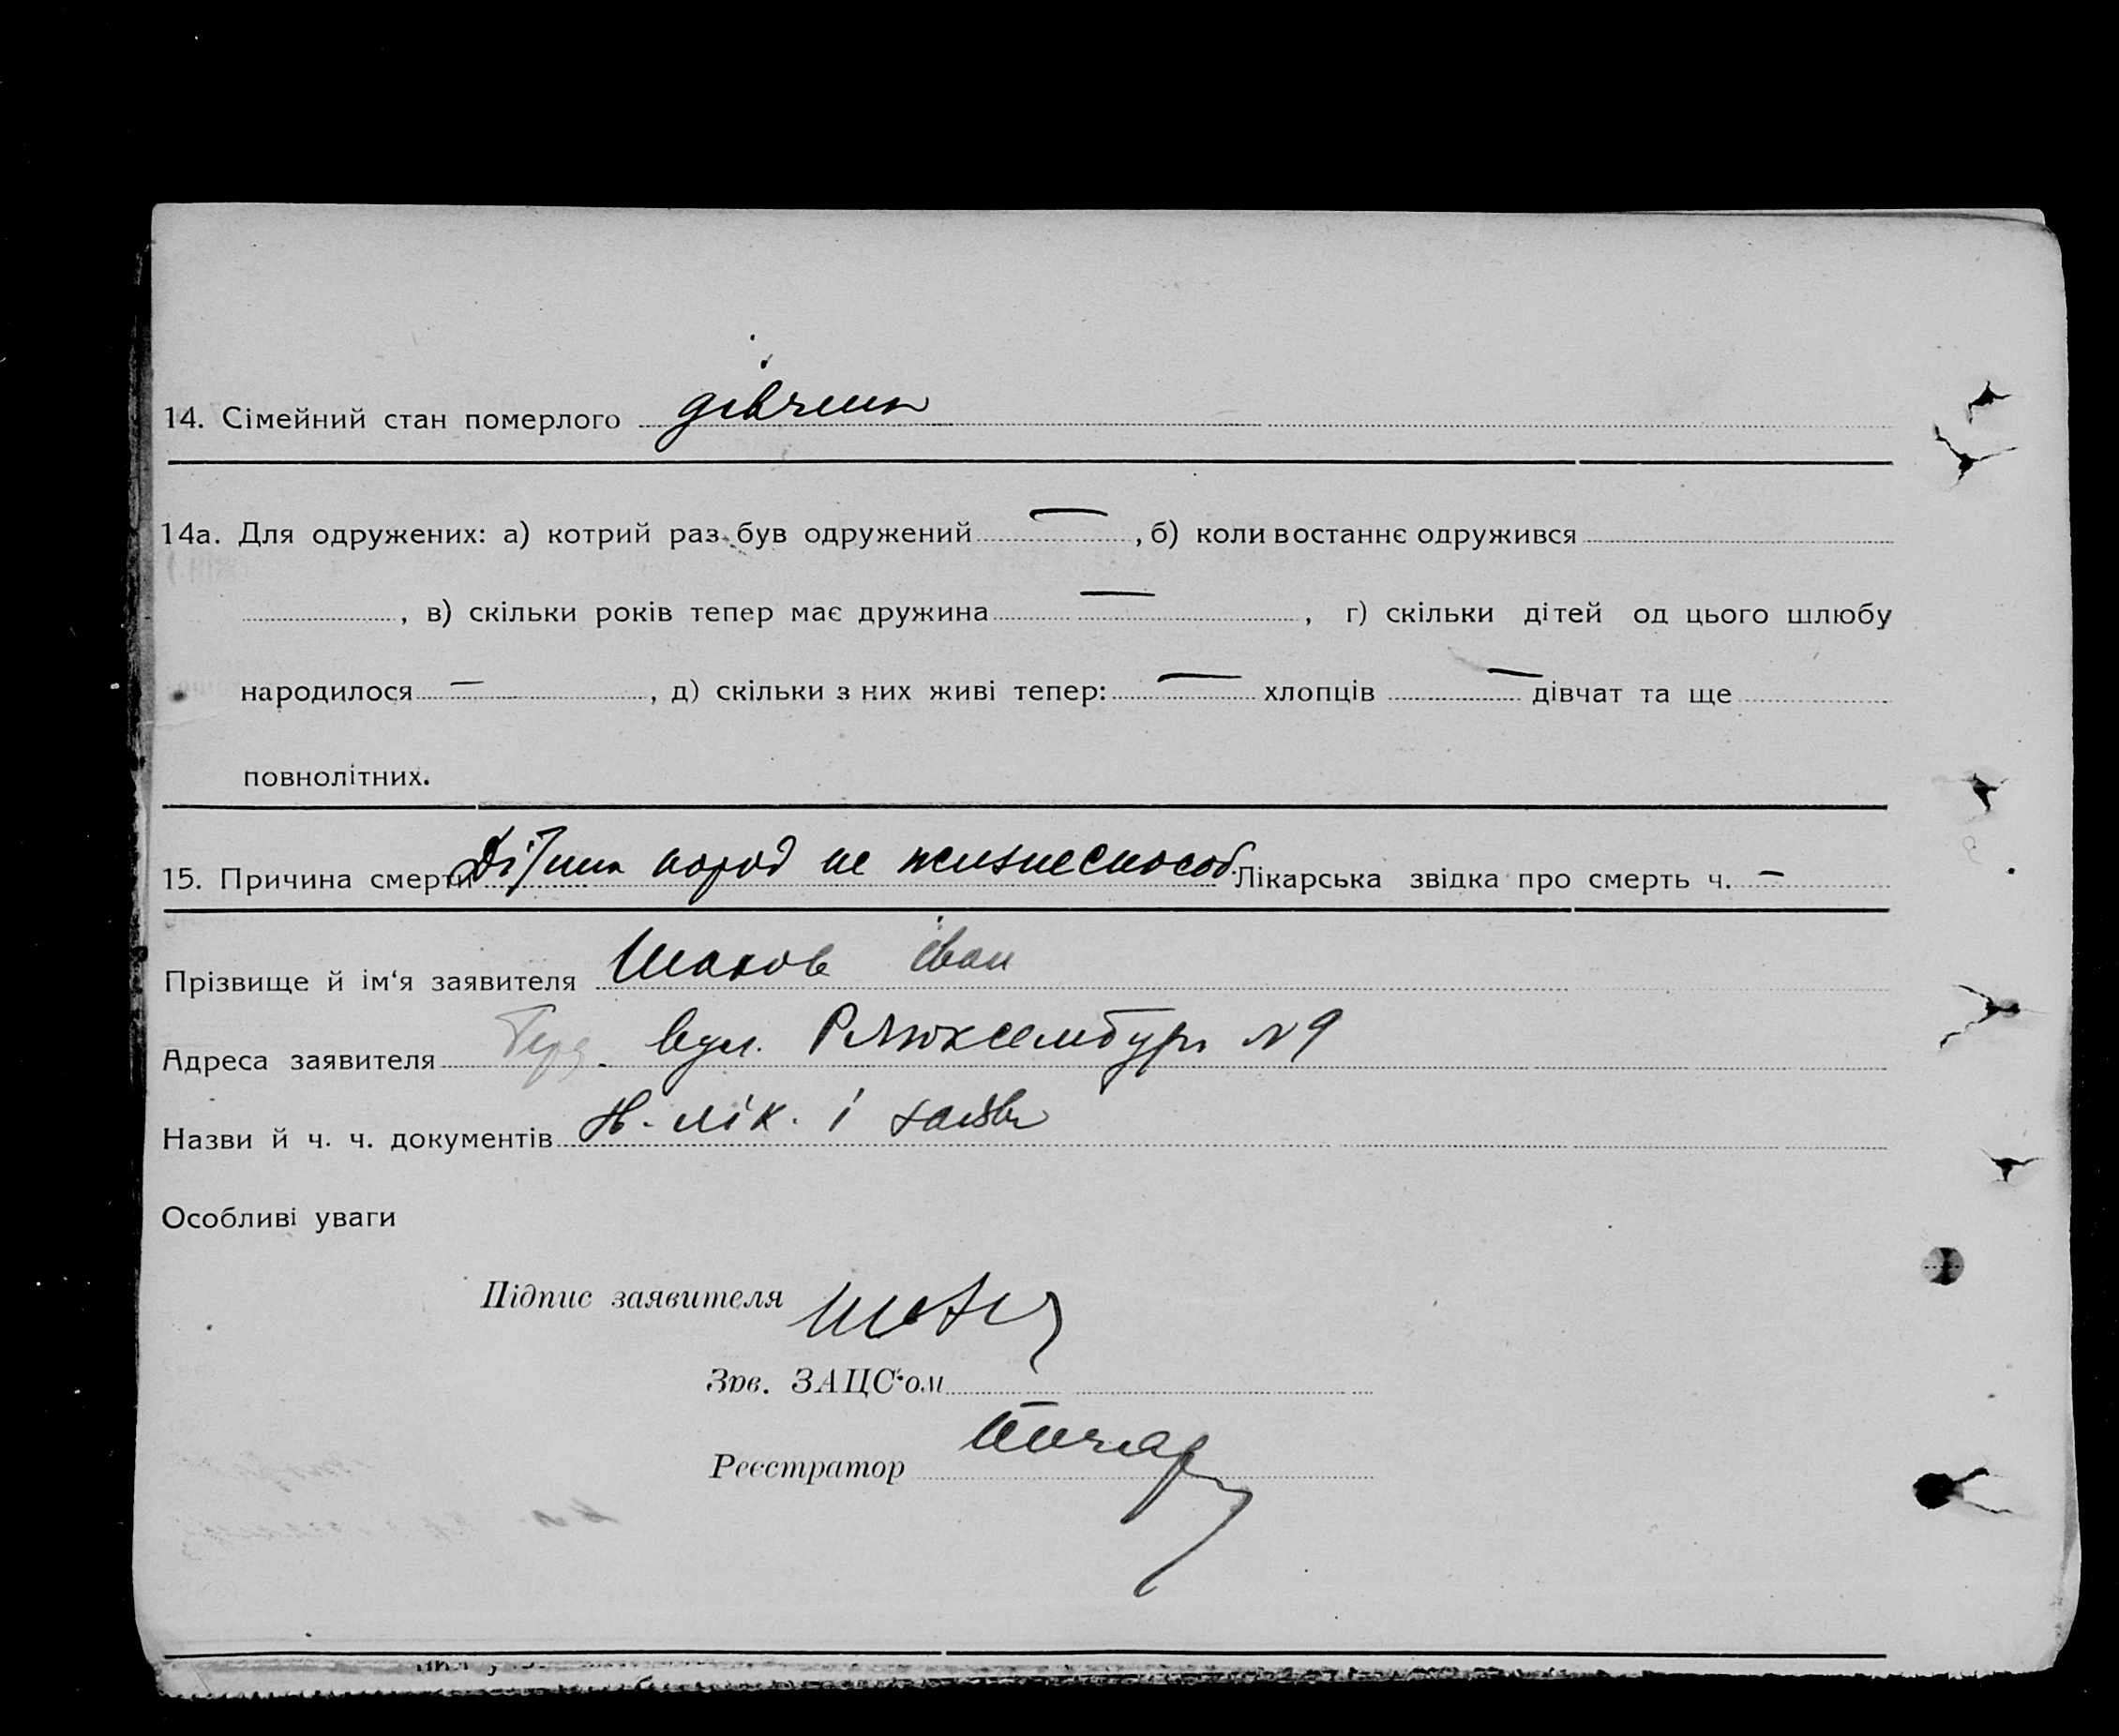 14. Сімейний стан померлого дівчина
14а. Для одружених: а) котрий раз був одружений — , б) коли востаннє одружився
, в) скільки років тепер має дружина — , г) скільки дітей од цього шлюбу
народилося — , д) скільки з них живі тепер: — хлопців — дівчат та ще
повнолітних.
15. Причина смерти Дітина народ не жизнеспособ. Лікарська звідка про смерть ч. —
Прізвище й ім'я заявителя Іван
Адреса заявителя вул. Р Люксембург №9
Назви й ч. ч. документів лік. і заяв
Особливі уваги
Підпис заявителя
Зав. ЗАЦС'ом
Реєстратор